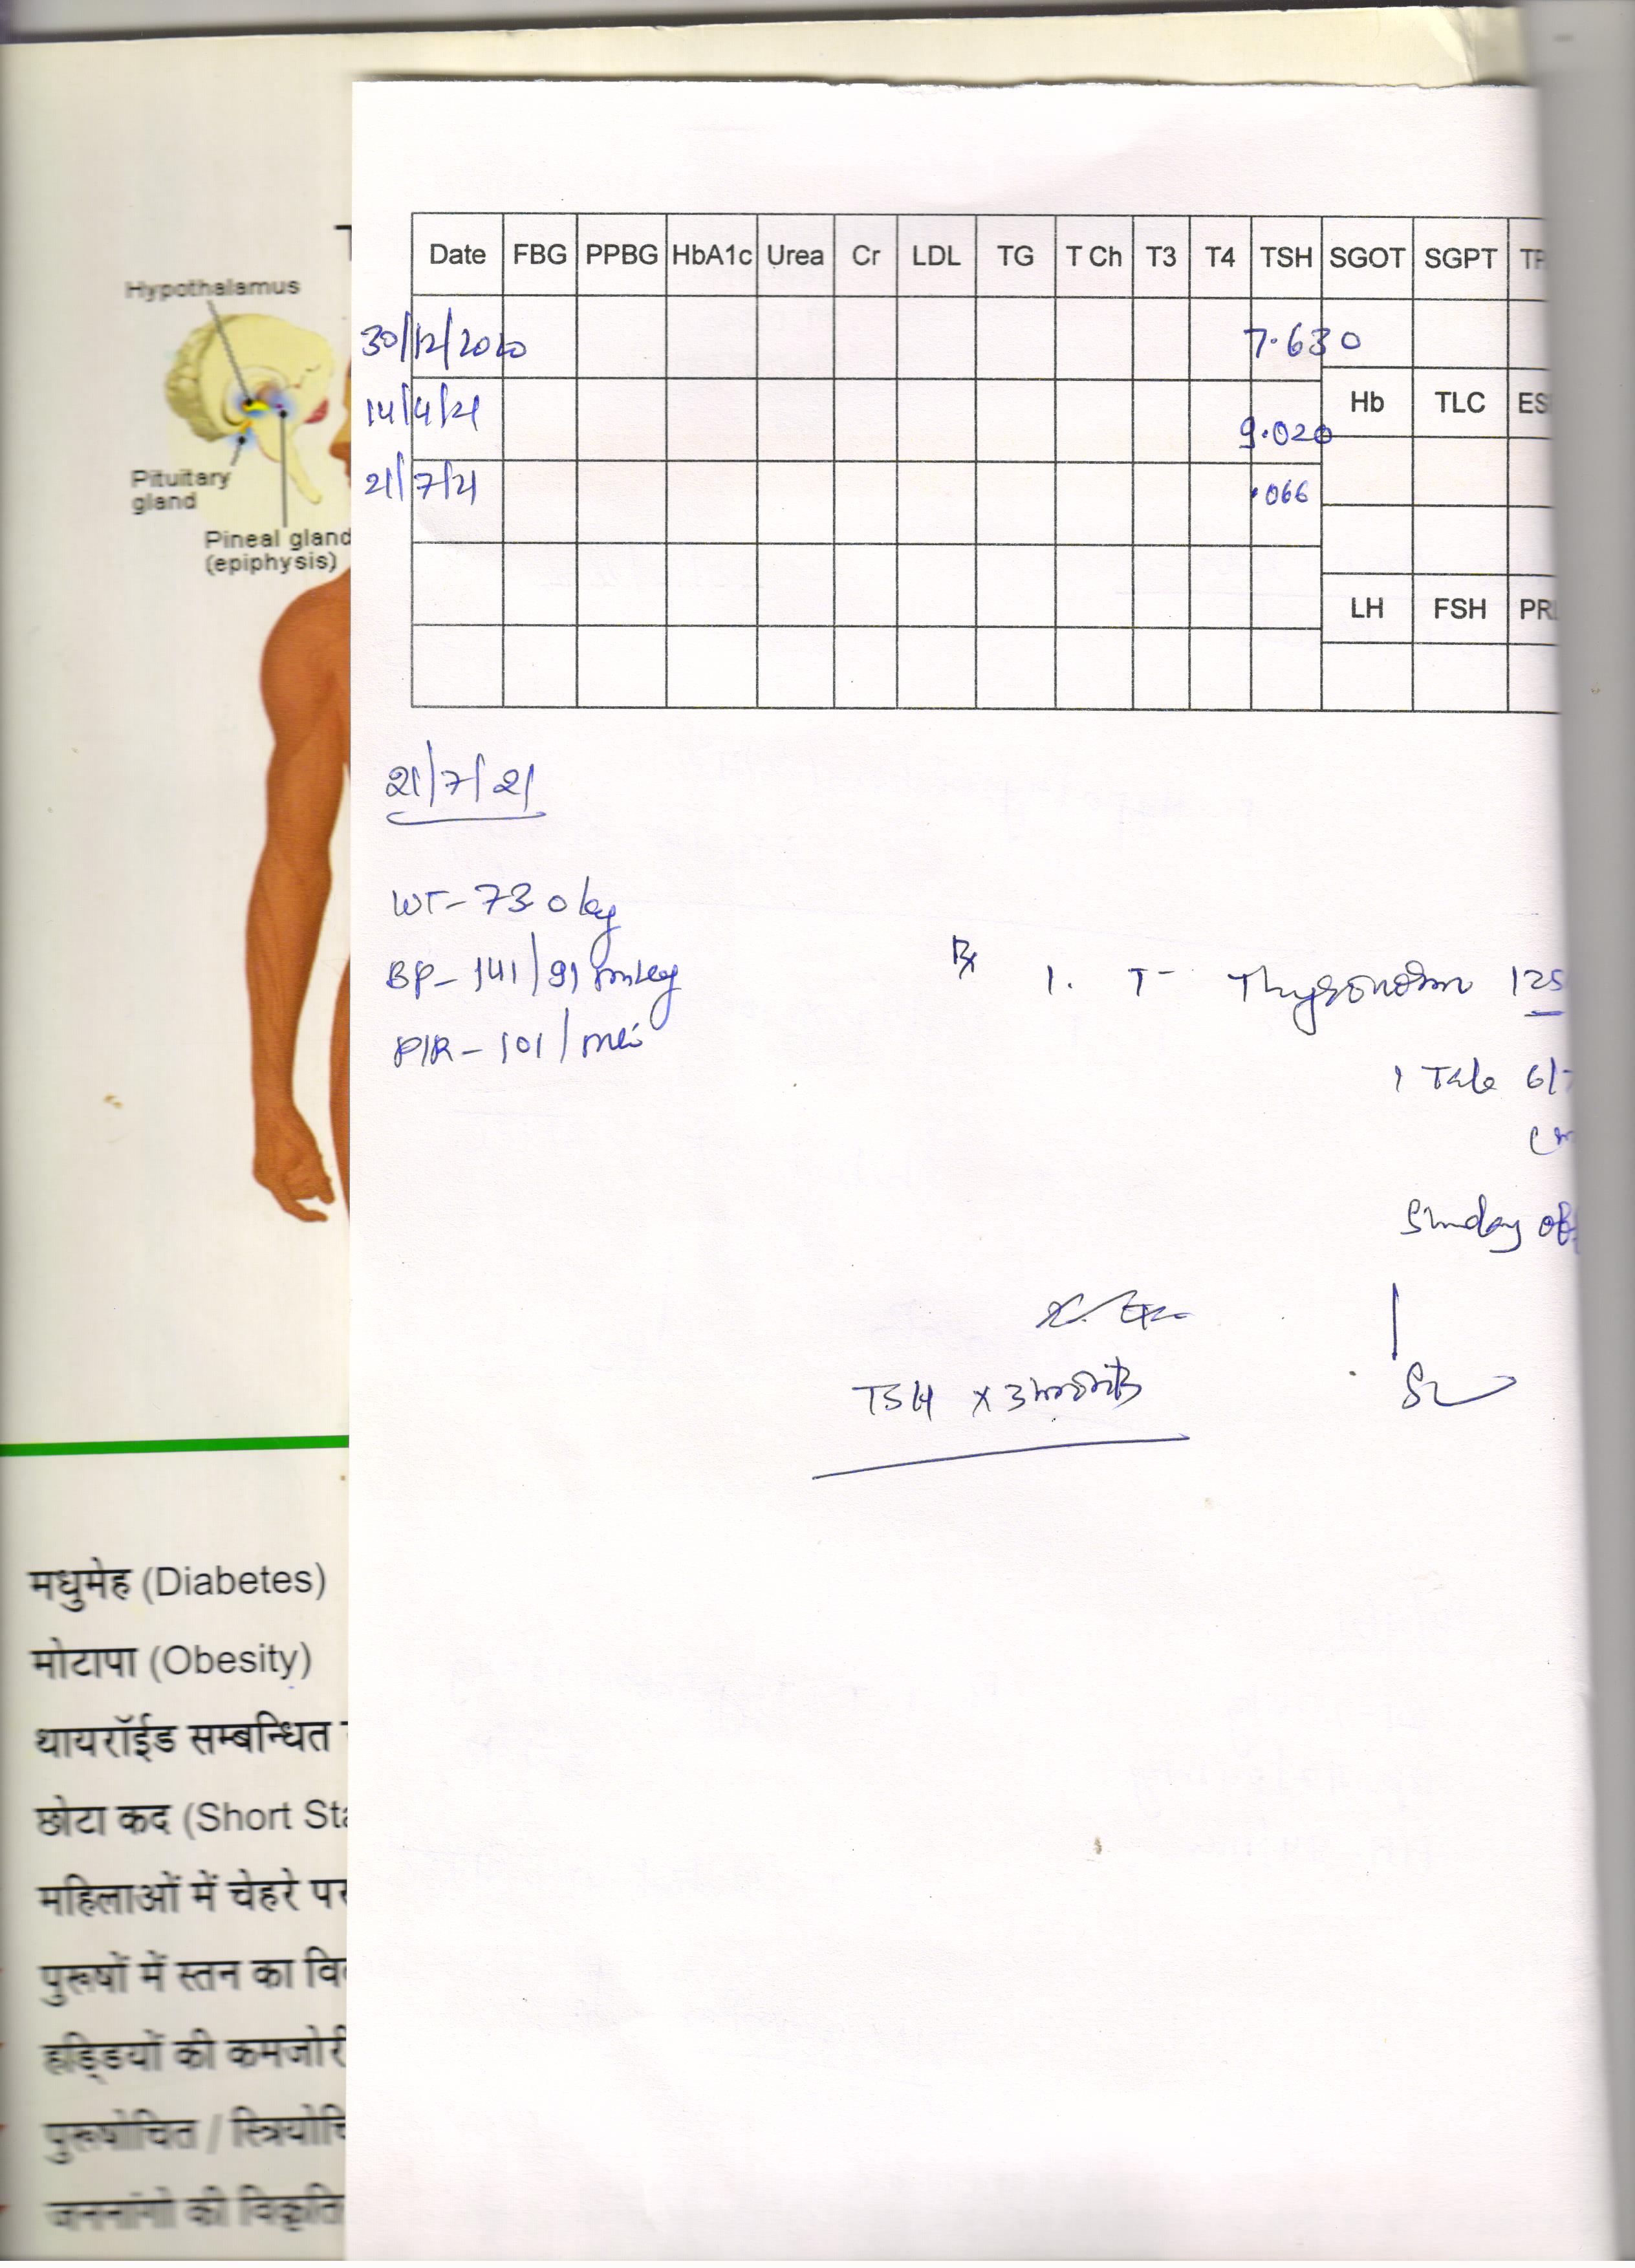 Hypothalamus
Pituitary
gland
Pineal gland
(epiphysis)
Date FBG PPBG HbA1c Urea Cr LDL TG T Ch T3 T4 TSH SGOT SGPT
30/12/2020 7.630
Hb TLC
14/4/21 9.020
21/7/21 .066
LH FSH
21/7/21
WT- 73.0 kg
BP- 141/91 mmHg
P/R - 101/min
Rx 1. T- Thyronorm 125
1 Tab 6/7
Sunday off
TSH x 3 months
मधुमेह (Diabetes)
मोटापा (Obesity)
थायरॉईड सम्बन्धित
छोटा कद (Short
महिलाओं में चेहरे
पुरूषों में स्तन का
हड्डियों की
पुरूषोचित /
जननांगो की विकृति